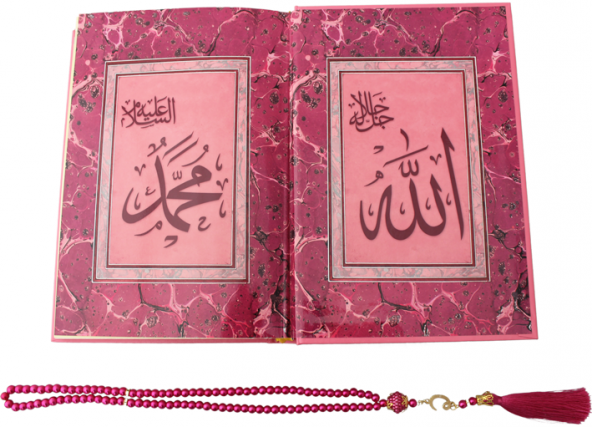 جل جلاله
الله
عليه السلام
محمد